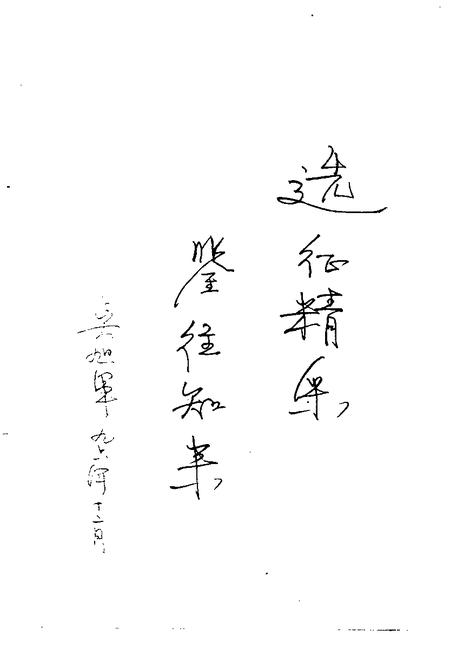 选征精
鉴往知来
吴旭 九六年十二月